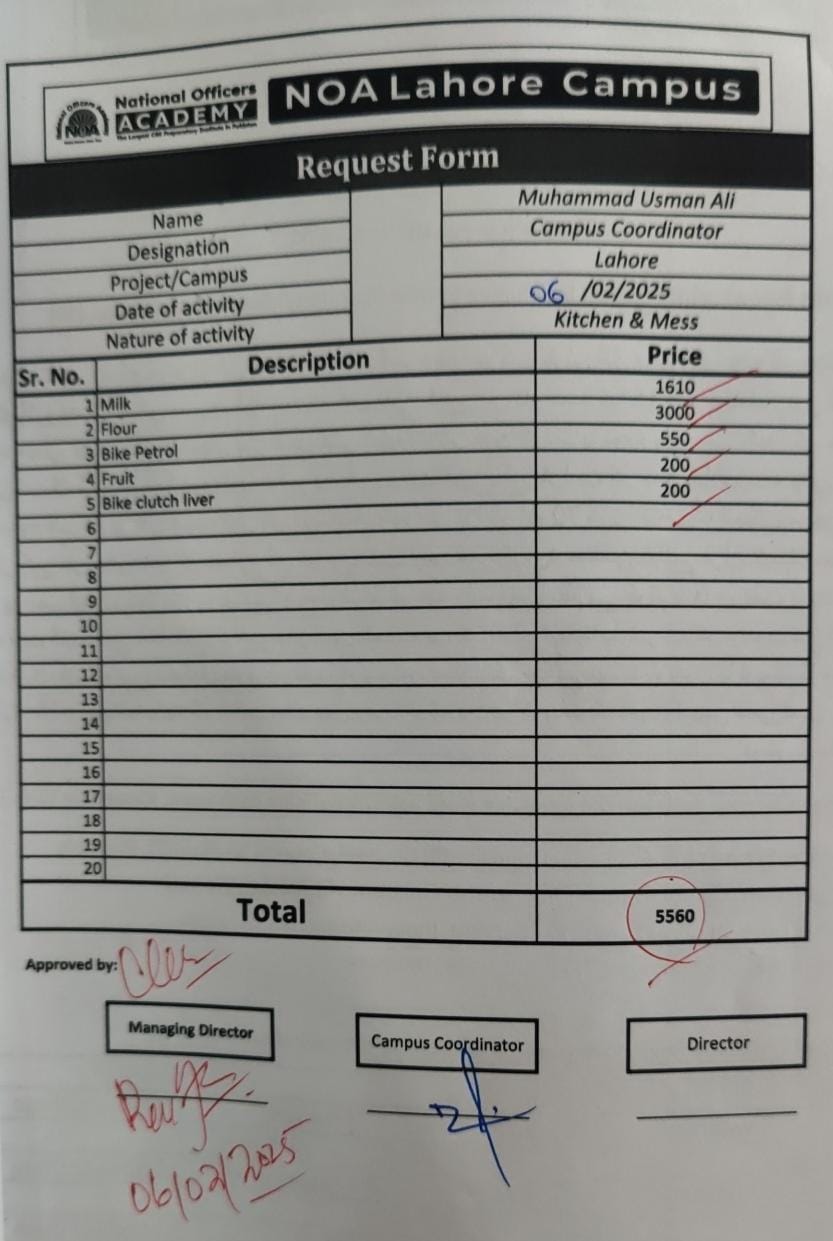 National Officers
ACADEMY
NOA
NOA Lahore Campus
Request Form
Name Muhammad Usman Ali
Designation Campus Coordinator
Project/Campus Lahore
Date of activity 06 /02/2025
Nature of activity Kitchen & Mess
Sr. No. Description Price
1 Milk 1610
2 Flour 3000
3 Bike Petrol 550
4 Fruit 200
5 Bike clutch liver 200
6
7
8
9
10
11
12
13
14
15
16
17
18
19
20
Total 5560
Approved by:
Managing Director Campus Coordinator Director
06/02/2025